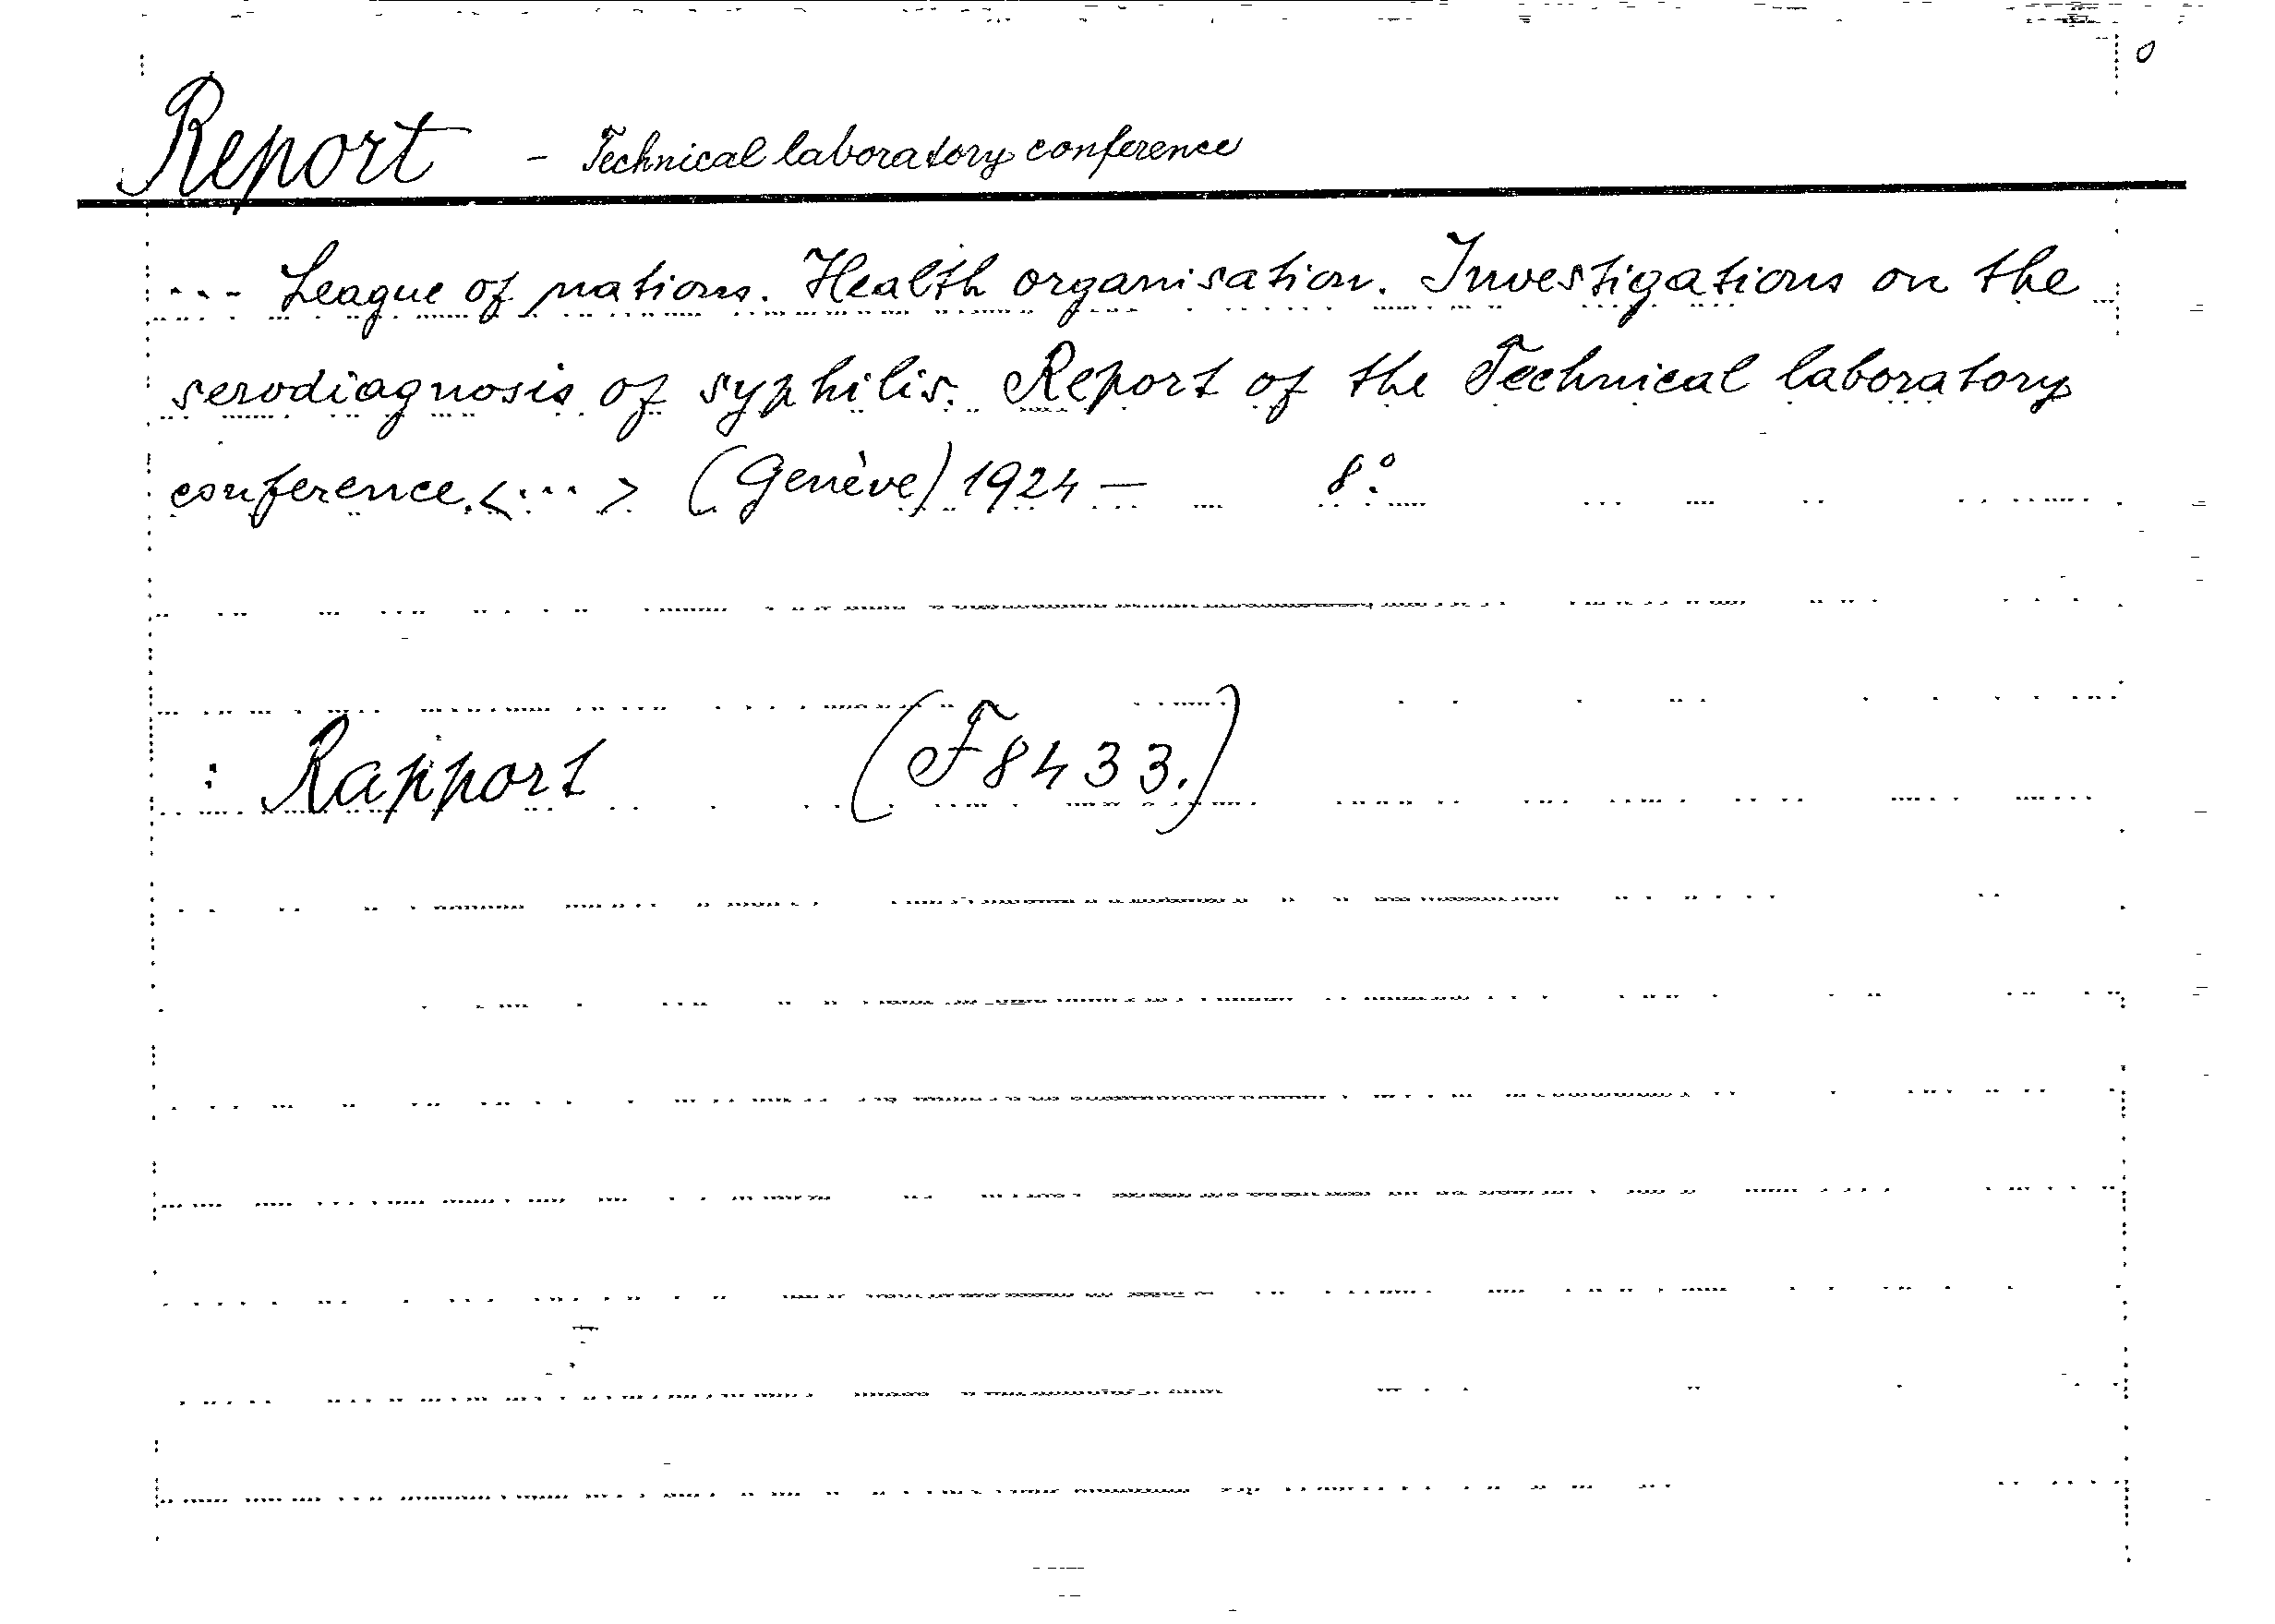 Report - Technical laboratory conference
--- League of nations. Health organisation. Investigations on the
serodiagnosis of syphilis. Report of the Technical laboratory
conference. <...> (Genève) 1924 — 8:o
: Rapport (F 8433.)